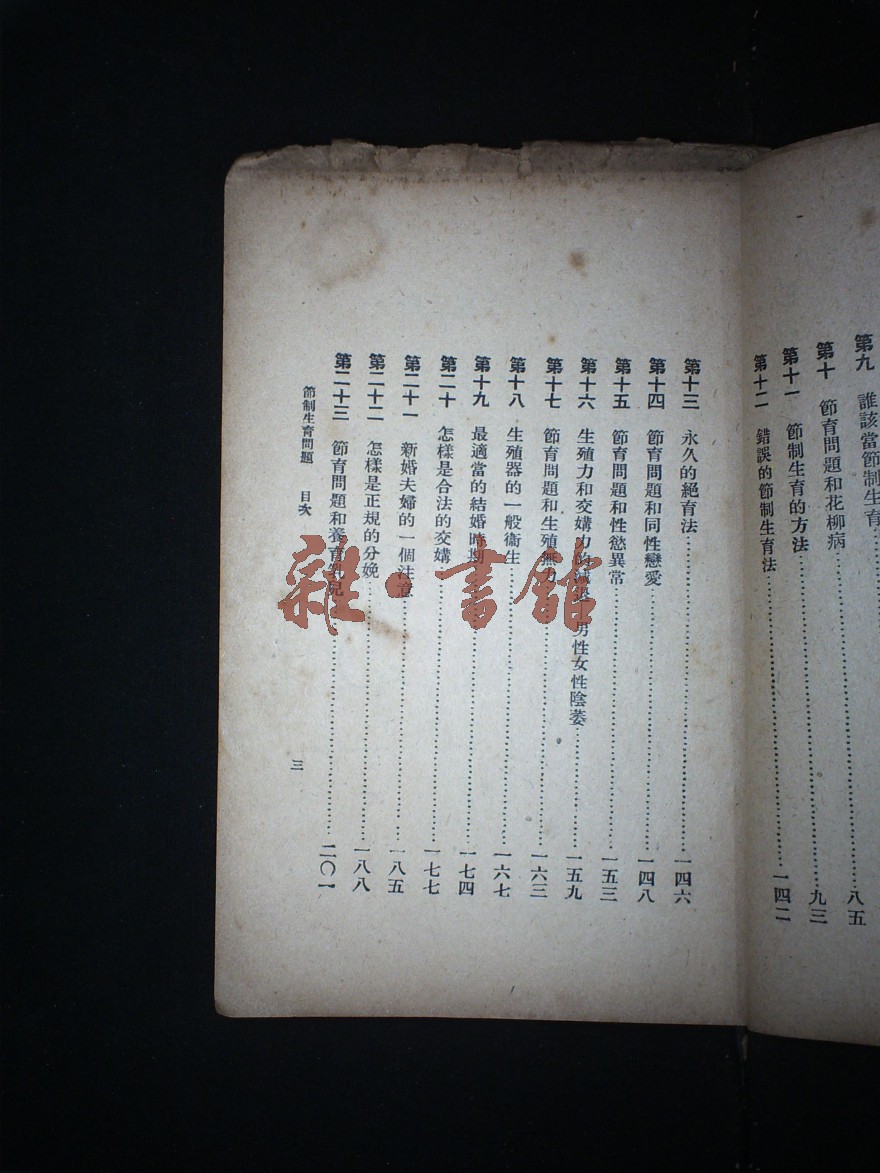 第九 誰該當節制生育……
第十 節育問題和花柳病……八五
第十一 節制生育的方法……九三
第十二 錯誤的節制生育法……一四二
第十三 永久的絕育法……一四六
第十四 節育問題和同性戀愛……一四八
第十五 節育問題和性慾異常……一五三
第十六 生殖力和交媾力的減退—男性女性陰萎……一五九
第十七 節育問題和生殖無力……一六三
第十八 生殖器的一般衞生……一六七
第十九 最適當的結婚時期……一七四
第二十 怎樣是合法的交媾……一七七
第二十一 新婚夫婦的一個注意……一八五
第二十二 怎樣是正規的分娩……一八八
第二十三 節育問題和養育乳兒……二〇一
節制生育問題 目次 三
雜·書館